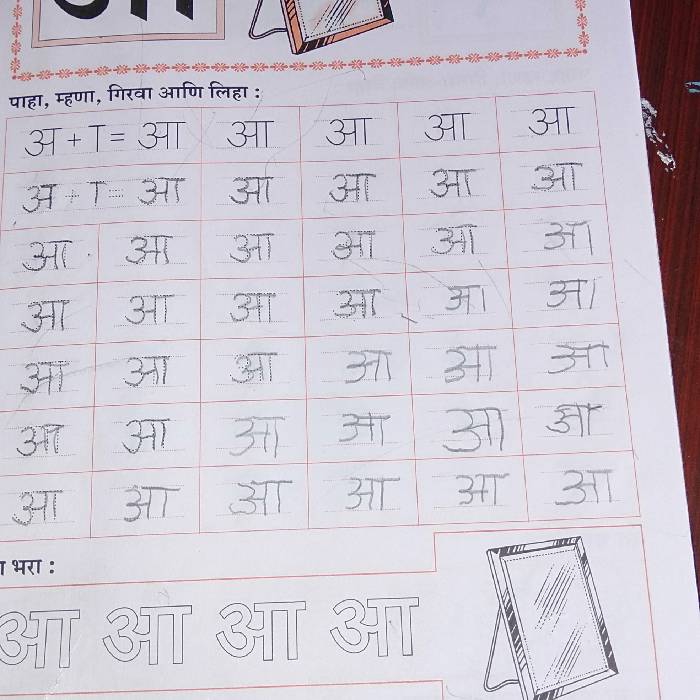 पाहा, म्हणा, गिरवा आणि लिहा :
अ + ा = आ आ आ आ आ
अ + ा = आ आ आ आ आ
आ आ आ आ आ आ
आ आ आ आ आ आ
आ आ आ आ आ आ
आ आ आ आ आ आ
आ आ आ आ आ आ
भरा :
आ आ आ आ